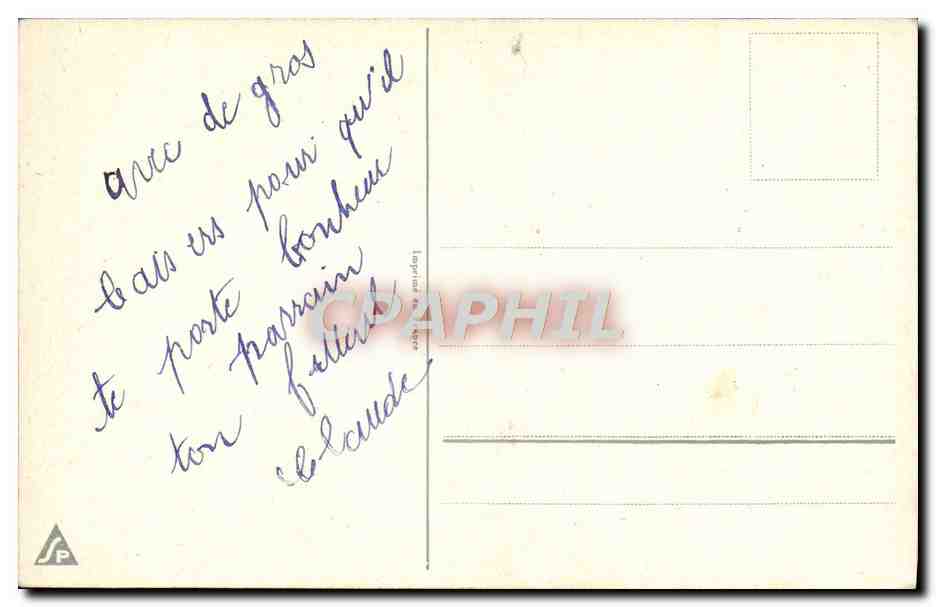 avec de gros
baisers pour qu'il
te porte bonheur
parrain
ton filleul
Claude
Imprimé en France
CPAPHIL
SP